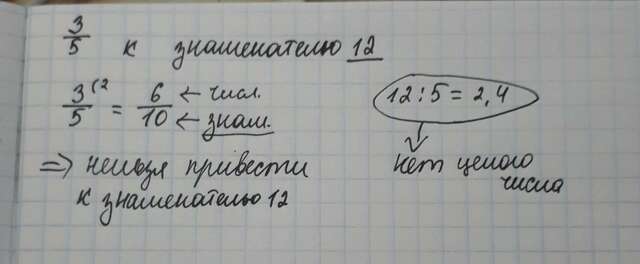 3/5 к знаменателю 12
3(2/5 = 6/10 ← числ.
← знам.
⇒ нельзя привести
к знаменателю 12
12:5=2,4
нет целого
числа